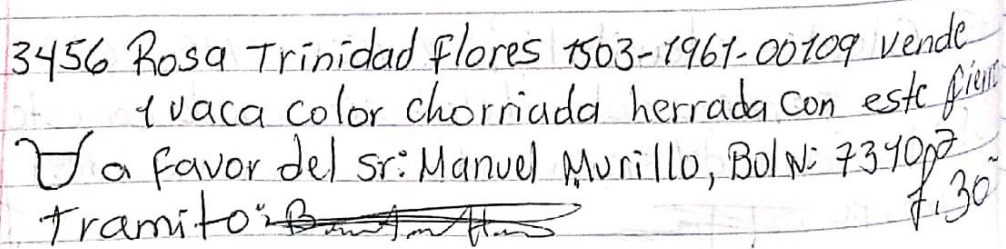 3456 Rosa Trinidad flores 1503-1961-00109 vende
1 vaca color chorriada herrada con este fierro
a favor del sr: Manuel Murillo, Bol N: 7340
7.30
Tramito: